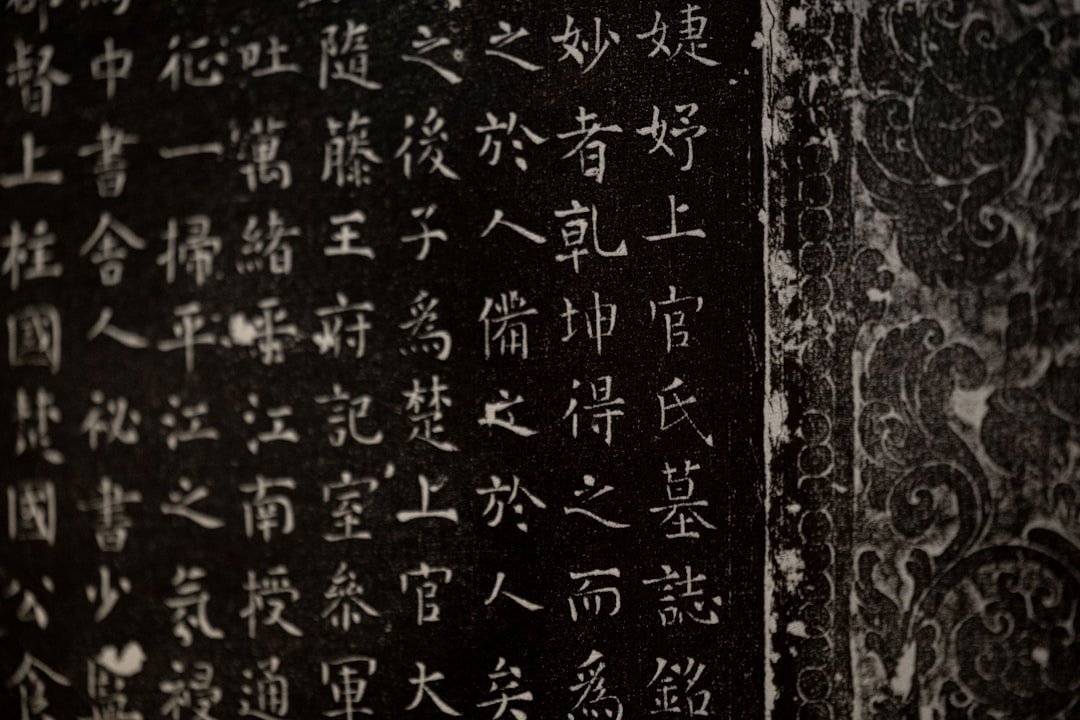 婕妤上官氏墓誌銘
妙者乹坤得之而爲
之於人俻之於人矣
之後子爲楚上官大
隨藤王府記室叅軍
吐萬緒平江南授通
征一掃平江之氛祲
中書舍人祕書少監
督上柱國楚國公食